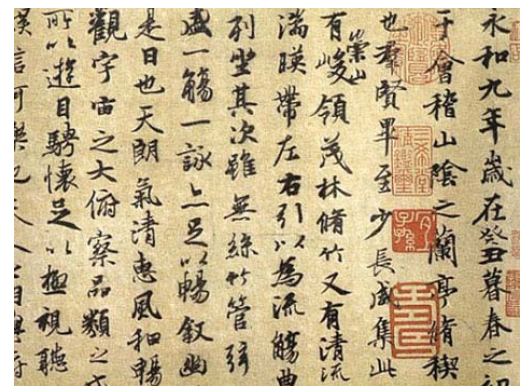 永和九年歲在癸丑暮春之初
于會稽山陰之蘭亭脩稧
也羣賢畢至少長咸集此
有崇山峻領茂林脩竹又有清流
湍暎帶左右引以為流觴曲
列坐其次雖無絲竹管弦
盛一觴一詠亦足以暢叙幽
是日也天朗氣清惠風和暢
觀宇宙之大俯察品類之盛
所以遊目騁懷足以極視聽
信可樂也夫人之相與
三希堂精鑑璽
宜子孫